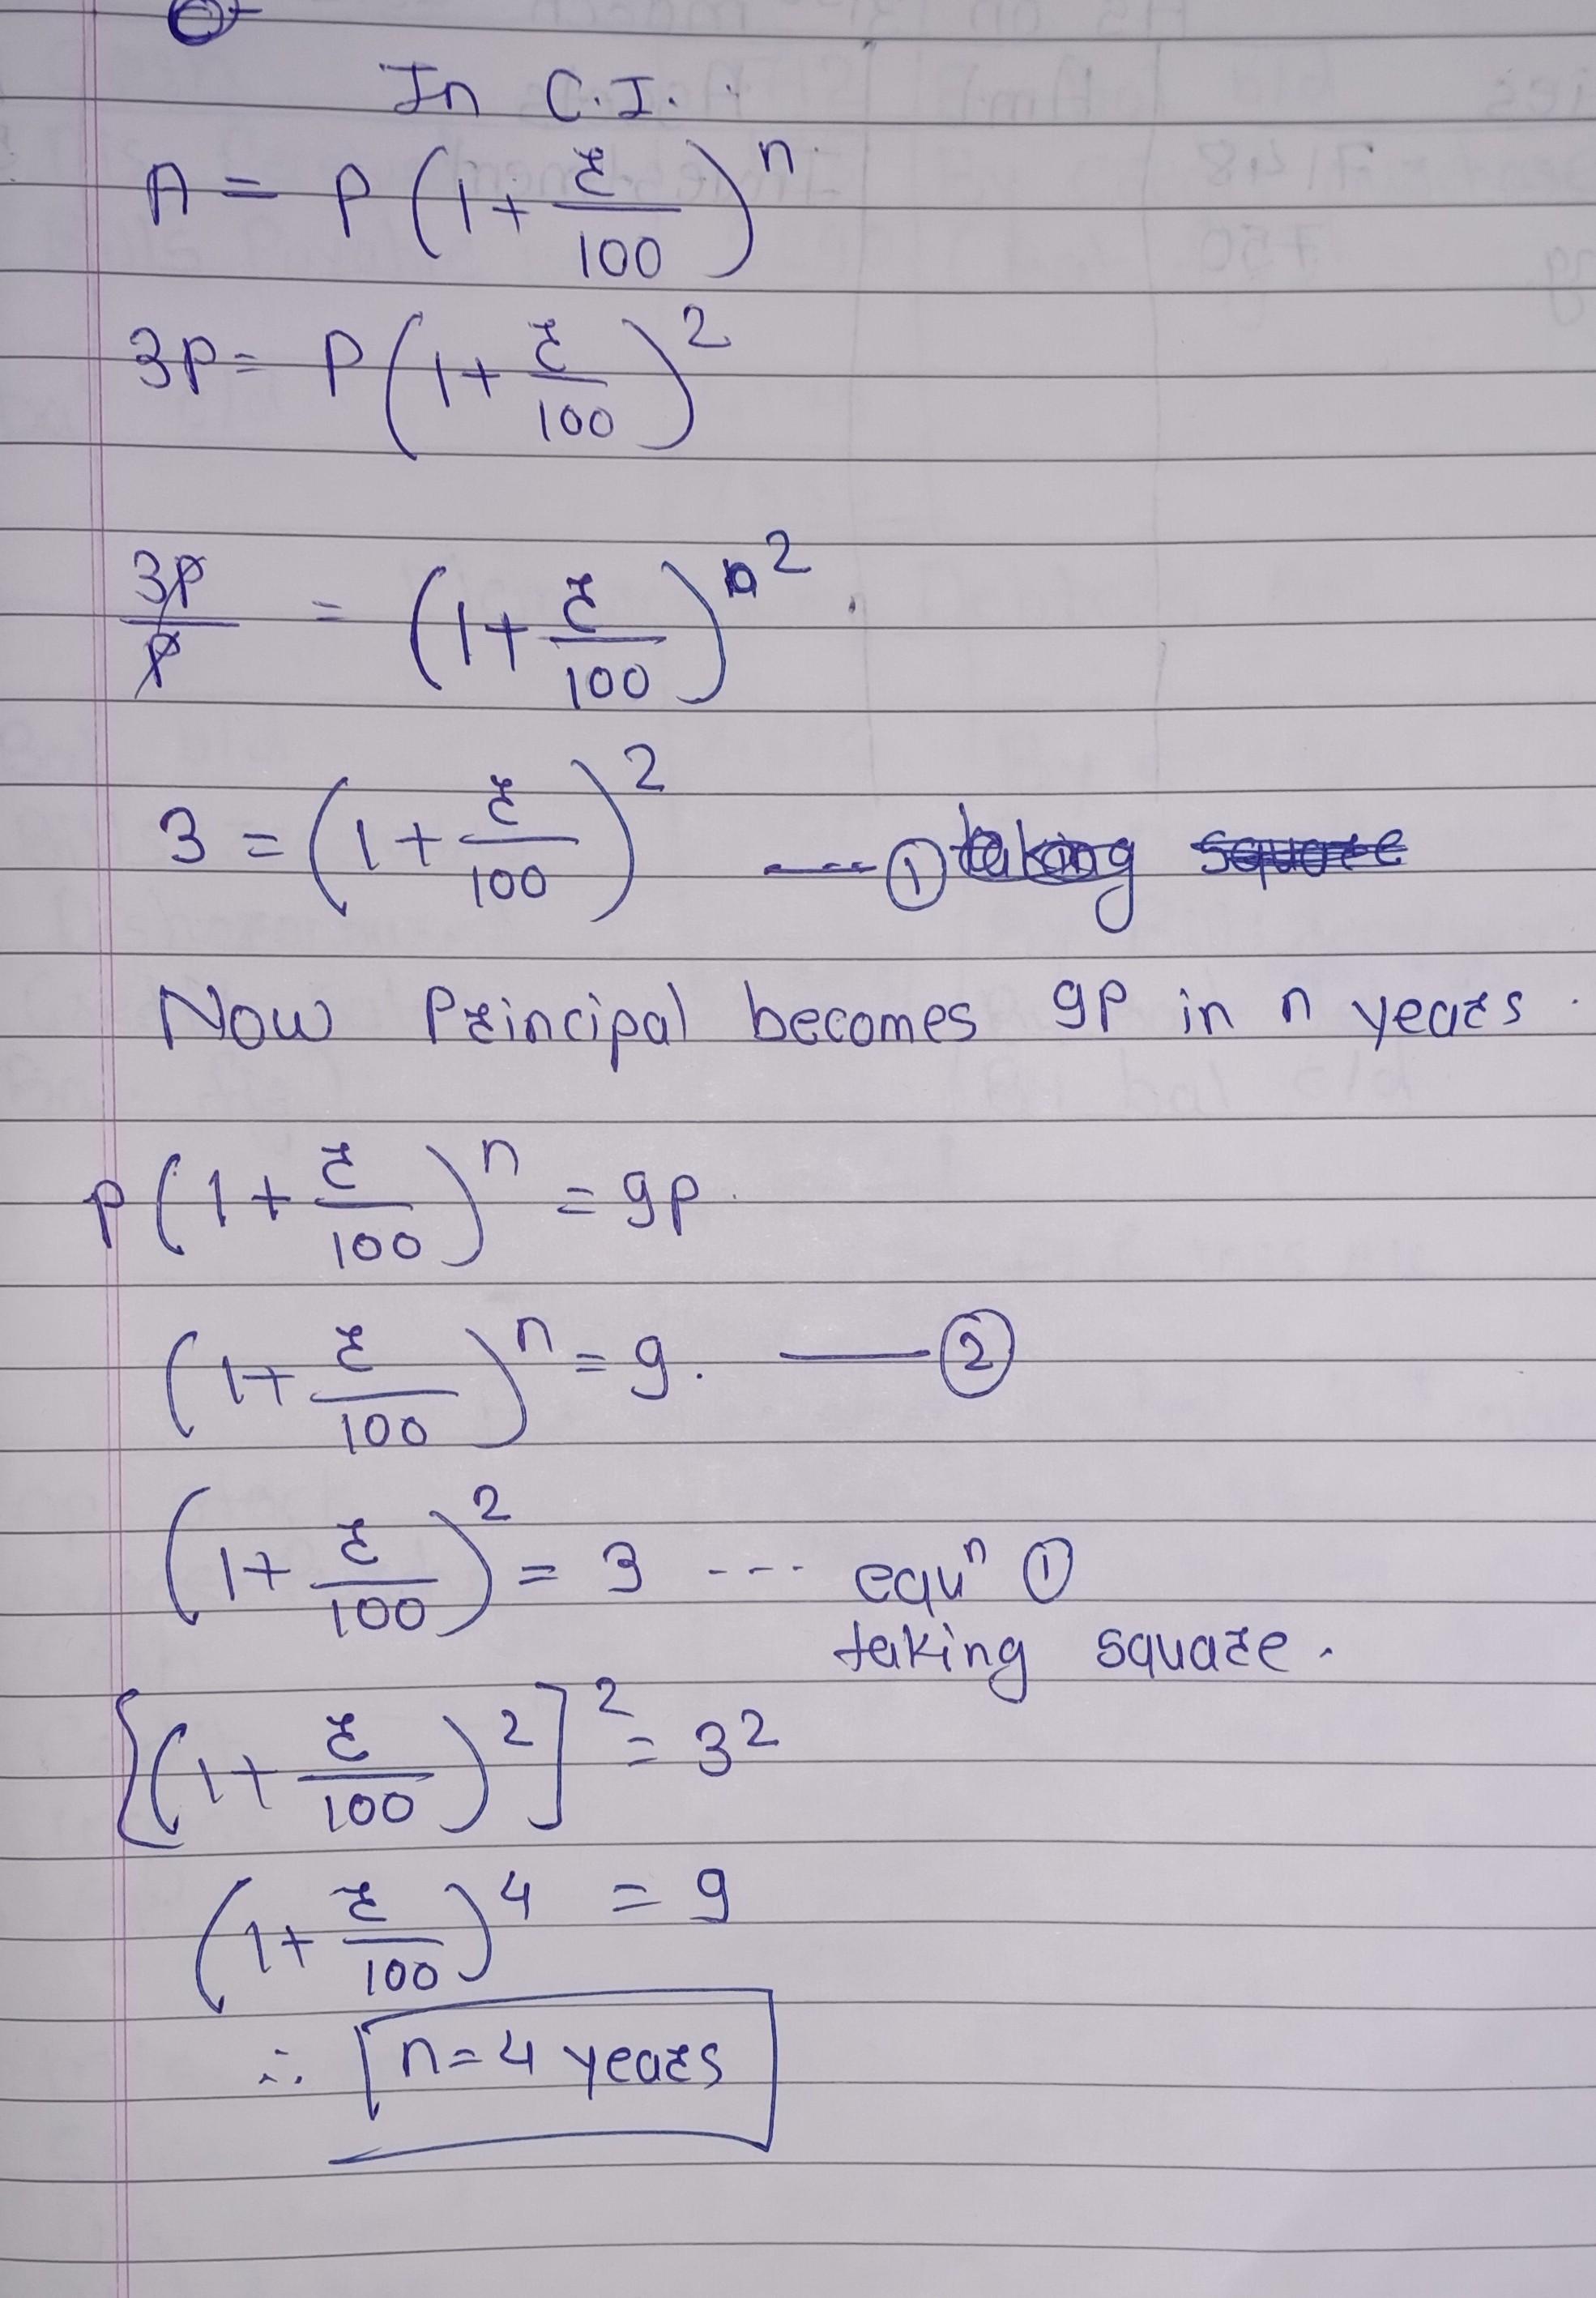 In C.I.
A = P (1 + r/100)^n
3P = P (1 + r/100)^2
3P/P = (1 + r/100)^2
3 = (1 + r/100)^2 --- ① taking square
Now Principal becomes 9P in n years.
P (1 + r/100)^n = 9P.
(1 + r/100)^n = 9. — ②
(1 + r/100)^2 = 3 --- equⁿ ①
taking square.
[(1 + r/100)^2]^2 = 3^2
(1 + r/100)^4 = 9
∴ n = 4 years